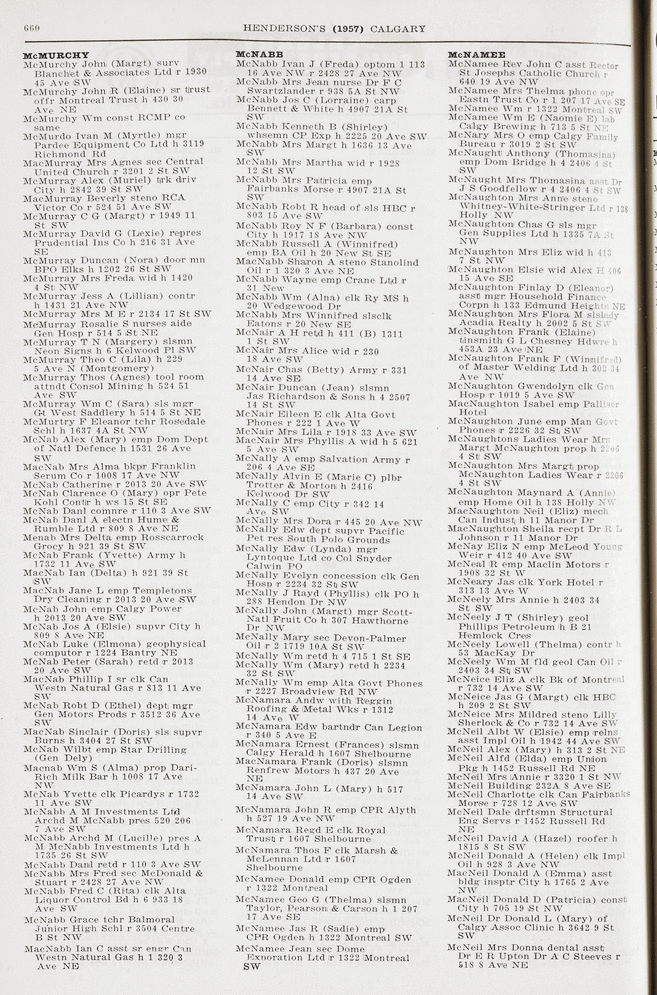 660
HENDERSON'S (1957) CALGARY
McMURCHY
McMurchy John (Margt) surv
Blanchet & Associates Ltd r 1930
45 Ave SW
McMurchy John R (Elaine) sr trust
offr Montreal Trust h 430 30
Ave NE
McMurchy Wm const RCMP co
same
McMurdo Ivan M (Myrtle) mgr
Pardee Equipment Co Ltd h 3119
Richmond Rd
MacMurray Mrs Agnes sec Central
United Church r 3201 2 St SW
McMurray Alex (Muriel) trk driv
City h 2842 39 St SW
MacMurray Beverly steno RCA
Victor Co r 524 51 Ave SW
McMurray C G (Margt) r 1949 11
St SW
McMurray David G (Lexie) repres
Prudential Ins Co h 216 31 Ave
SE
McMurray Duncan (Nora) door mn
BPO Elks h 1202 26 St SW
McMurray Mrs Freda wid h 1420
4 St NW
McMurray Jess A (Lillian) contr
h 1431 21 Ave NW
McMurray Mrs M E r 2134 17 St SW
McMurray Rosalie S nurses aide
Gen Hosp r 514 5 St NE
McMurray T N (Margery) slsmn
Neon Signs h 6 Kelwood Pl SW
McMurray Theo C (Lila) h 229
5 Ave N (Montgomery)
McMurray Thos (Agnes) tool room
attndt Consol Mining h 524 51
Ave SW
McMurray Wm C (Sara) sls mgr
Gt West Saddlery h 514 5 St NE
McMurtry F Eleanor tchr Rosedale
Schl h 1637 4A St NW
McNab Alex (Mary) emp Dom Dept
of Natl Defence h 1531 26 Ave
SW
MacNab Mrs Alma bkpr Franklin
Serum Co r 1008 17 Ave NW
McNab Catherine r 2013 20 Ave SW
McNab Clarence O (Mary) opr Pete
Kohl Contr h ws 15 St SE
McNab Danl comnre r 110 3 Ave SW
McNab Danl A electn Hume &
Rumble Ltd r 809 8 Ave NE
Menab Mrs Delta emp Rosscarrock
Grocy h 921 39 St SW
McNab Frank (Yvette) Army h
1732 11 Ave SW
MacNab Ian (Delta) h 921 39 St
SW
MacNab Jane L emp Templetons
Dry Cleaning r 2013 20 Ave SW
McNab John emp Calgy Power
h 2013 20 Ave SW
McNab Jos A (Elsie) supvr City h
809 8 Ave NE
McNab Luke (Elmona) geophysical
computor r 1224 Bantry NE
McNab Peter (Sarah) retd r 2013
20 Ave SW
MacNab Phillip I sr clk Can
Westn Natural Gas r 813 11 Ave
SW
McNab Robt D (Ethel) dept mgr
Gen Motors Prods r 3512 36 Ave
SW
MacNab Sinclair (Doris) sls supvr
Burns h 3404 27 St SW
McNab Wilbt emp Star Drilling
(Gen Dely)
Macnab Wm S (Alma) prop Dari-
Rich Milk Bar h 1008 17 Ave
NW
McNab Yvette clk Picardys r 1732
11 Ave SW
McNabb A M Investments Ltd
Archd M McNabb pres 520 206
7 Ave SW
McNabb Archd M (Lucille) pres A
M McNabb Investments Ltd h
1735 26 St SW
McNabb Danl retd r 110 3 Ave SW
McNabb Mrs Fred sec McDonald &
Stuart r 2428 27 Ave NW
McNabb Fred C (Rita) clk Alta
Liquor Control Bd h 6 933 18
Ave SW
McNabb Grace tchr Balmoral
Junior High Schl r 3504 Centre
B St NW
MacNabb Ian C asst sr engr Can
Westn Natural Gas h 1 320 3
Ave NE
McNABB
McNabb Ivan J (Freda) optom 1 113
16 Ave NW r 2428 27 Ave NW
McNabb Mrs Jean nurse Dr F C
Swartzlander r 938 5A St NW
McNabb Jos C (Lorraine) carp
Bennett & White h 4907 21A St
SW
McNabb Kenneth B (Shirley)
whsemn CP Exp h 2225 20 Ave SW
McNabb Mrs Margt h 1636 13 Ave
SW
McNabb Mrs Martha wid r 1928
12 St SW
McNabb Mrs Patricia emp
Fairbanks Morse r 4907 21A St
SW
McNabb Robt R head of sls HBC r
803 15 Ave SW
McNabb Roy N F (Barbara) const
City h 1917 18 Ave NW
McNabb Russell A (Winnifred)
emp BA Oil h 20 New St SE
MacNabb Sharon A steno Stanolind
Oil r 1 320 3 Ave NE
McNabb Wayne emp Crane Ltd r
31 New
McNabb Wm (Alna) clk Ry MS h
20 Wedgewood Dr
McNabb Mrs Winnifred slsclk
Eatons r 20 New SE
McNair A H retd h 411 (B) 1311
1 St SW
McNair Mrs Alice wid r 230
18 Ave SW
McNair Chas (Betty) Army r 331
14 Ave SE
McNair Duncan (Jean) slsmn
Jas Richardson & Sons h 4 2507
14 St SW
McNair Eileen E clk Alta Govt
Phones r 222 1 Ave W
McNair Mrs Lila r 1918 33 Ave SW
MacNair Mrs Phyllis A wid h 5 621
5 Ave SW
McNally A emp Salvation Army r
206 4 Ave SE
McNally Alvin E (Marie C) plbr
Trotter & Morton h 2416
Kelwood Dr SW
McNally C emp City r 342 14
Ave SW
McNally Mrs Dora r 445 20 Ave NW
McNally Edw dept supvr Pacific
Pet res South Polo Grounds
McNally Edw (Lynda) mgr
Lyntoque Ltd co Col Snyder
Calwin PO
McNally Evelyn concession clk Gen
Hosp r 2234 32 St SW
McNally J Rayd (Phyllis) clk PO h
288 Hendon Dr NW
McNally John (Margt) mgr Scott-
Natl Fruit Co h 307 Hawthorne
Dr NW
McNally Mary sec Devon-Palmer
Oil r 2 1719 10A St SW
McNally Wm retd h 4 715 1 St SE
McNally Wm (Mary) retd h 2234
32 St SW
McNally Wm emp Alta Govt Phones
r 2227 Broadview Rd NW
McNamara Andw with Reggin
Roofing & Metal Wks r 1312
14 Ave W
McNamara Edw bartndr Can Legion
r 340 5 Ave E
McNamara Ernest (Frances) slsmn
Calgy Herald h 1607 Shelbourne
MacNamara Frank (Doris) slsmn
Renfrew Motors h 437 20 Ave
NE
McNamara John L (Mary) h 517
14 Ave SW
McNamara John R emp CPR Alyth
h 527 19 Ave NW
McNamara Regd E clk Royal
Trust r 1607 Shelbourne
McNamara Thos F clk Marsh &
McLennan Ltd r 1607
Shelbourne
McNamee Donald emp CPR Ogden
r 1322 Montreal
McNamee Geo G (Thelma) slsmn
Taylor, Pearson & Carson h 1 207
17 Ave SE
McNamee Jas R (Sadie) emp
CPR Ogden h 1322 Montreal SW
McNamee Jean sec Dome
Exporation Ltd r 1322 Montreal
SW
McNAMEE
McNamee Rev John C asst Rector
St Josephs Catholic Church r
640 19 Ave NW
McNamee Mrs Thelma phone opr
Eastn Trust Co r 1 207 17 Ave SE
McNamee Wm r 1322 Montreal SW
McNamee Wm E (Naomie E) lab
Calgy Brewing h 713 5 St NE
McNary Mrs O emp Calgy Family
Bureau r 3019 2 St SW
McNaught Anthony (Thomasina)
emp Dom Bridge h 4 2406 4 St
SW
McNaught Mrs Thomasina asst Dr
J S Goodfellow r 4 2406 4 St SW
McNaughton Mrs Anne steno
Whitney-White-Stringer Ltd r 138
Holly NW
McNaughton Chas G sls mgr
Gen Supplies Ltd h 1335 7A St
NW
McNaughton Mrs Eliz wid h 413
7 St NW
McNaughton Elsie wid Alex H 406
15 Ave SE
McNaughton Finlay D (Eleanor)
asst mgr Household Finance
Corpn h 133 Edmund Heights NE
McNaughton Mrs Flora M slslady
Acadia Realty h 2002 5 St SW
McNaughton Frank (Elaine)
tinsmith G L Chesney Hdwre h
453A 23 Ave NE
McNaughton Frank F (Winnifred)
of Master Welding Ltd h 302 34
Ave NW
McNaughton Gwendolyn clk Gen
Hosp r 1019 5 Ave SW
MacNaughton Isabel emp Palliser
Hotel
McNaughton June emp Man Govt
Phones r 2226 32 St SW
McNaughtons Ladies Wear Mrs
Margt McNaughton prop h 2206
4 St SW
McNaughton Mrs Margt prop
McNaughton Ladies Wear r 2206
4 St SW
McNaughton Maynard A (Annie)
emp Home Oil h 138 Holly NW
MacNaughton Neil (Eliz) mech
Can Indust h 11 Manor Dr
MacNaughton Sheila recpt Dr R L
Johnson r 11 Manor Dr
McNay Eliz N emp McLeod Young
Weir r 412 40 Ave SW
McNeal R emp Maclin Motors r
1908 32 St W
McNeary Jas clk York Hotel r
313 13 Ave W
McNeely Mrs Annie h 2403 34
St SW
McNeely J T (Shirley) geol
Phillips Petroleum h B 21
Hemlock Cres
McNeely Lowell (Thelma) contr h
53 MacKay Dr
McNeely Wm M fld geol Can Oil r
2403 34 St SW
McNeice Eliz A clk Bk of Montreal
r 732 14 Ave SW
McNeice Jas G (Margt) clk HBC
h 209 2 St SW
McNeice Mrs Mildred steno Lilly
Sherlock & Co r 732 14 Ave SW
McNeil Albt W (Elsie) emp relns
asst Impl Oil h 1942 44 Ave SW
McNeil Alex (Mary) h 313 2 St NE
McNeil Alfd (Elda) emp Union
Pkg h 1452 Russell Rd NE
McNeil Mrs Annie r 3320 1 St NW
McNeil Building 232A 8 Ave SE
McNeil Charlotte clk Can Fairbanks
Morse r 728 12 Ave SW
McNeil Dale drftsmn Structural
Eng Servs r 1452 Russell Rd
NE
McNeil David A (Hazel) roofer h
1815 8 St SW
McNeil Donald A (Helen) clk Impl
Oil h 928 3 Ave NW
MacNeil Donald A (Emma) asst
bldg insptr City h 1765 2 Ave
NW
MacNeil Donald D (Patricia) const
City h 705 19 St NW
McNeil Dr Donald L (Mary) of
Calgy Assoc Clinic h 3642 9 St
SW
McNeil Mrs Donna dental asst
Dr E R Upton Dr A C Steeves r
518 8 Ave NE